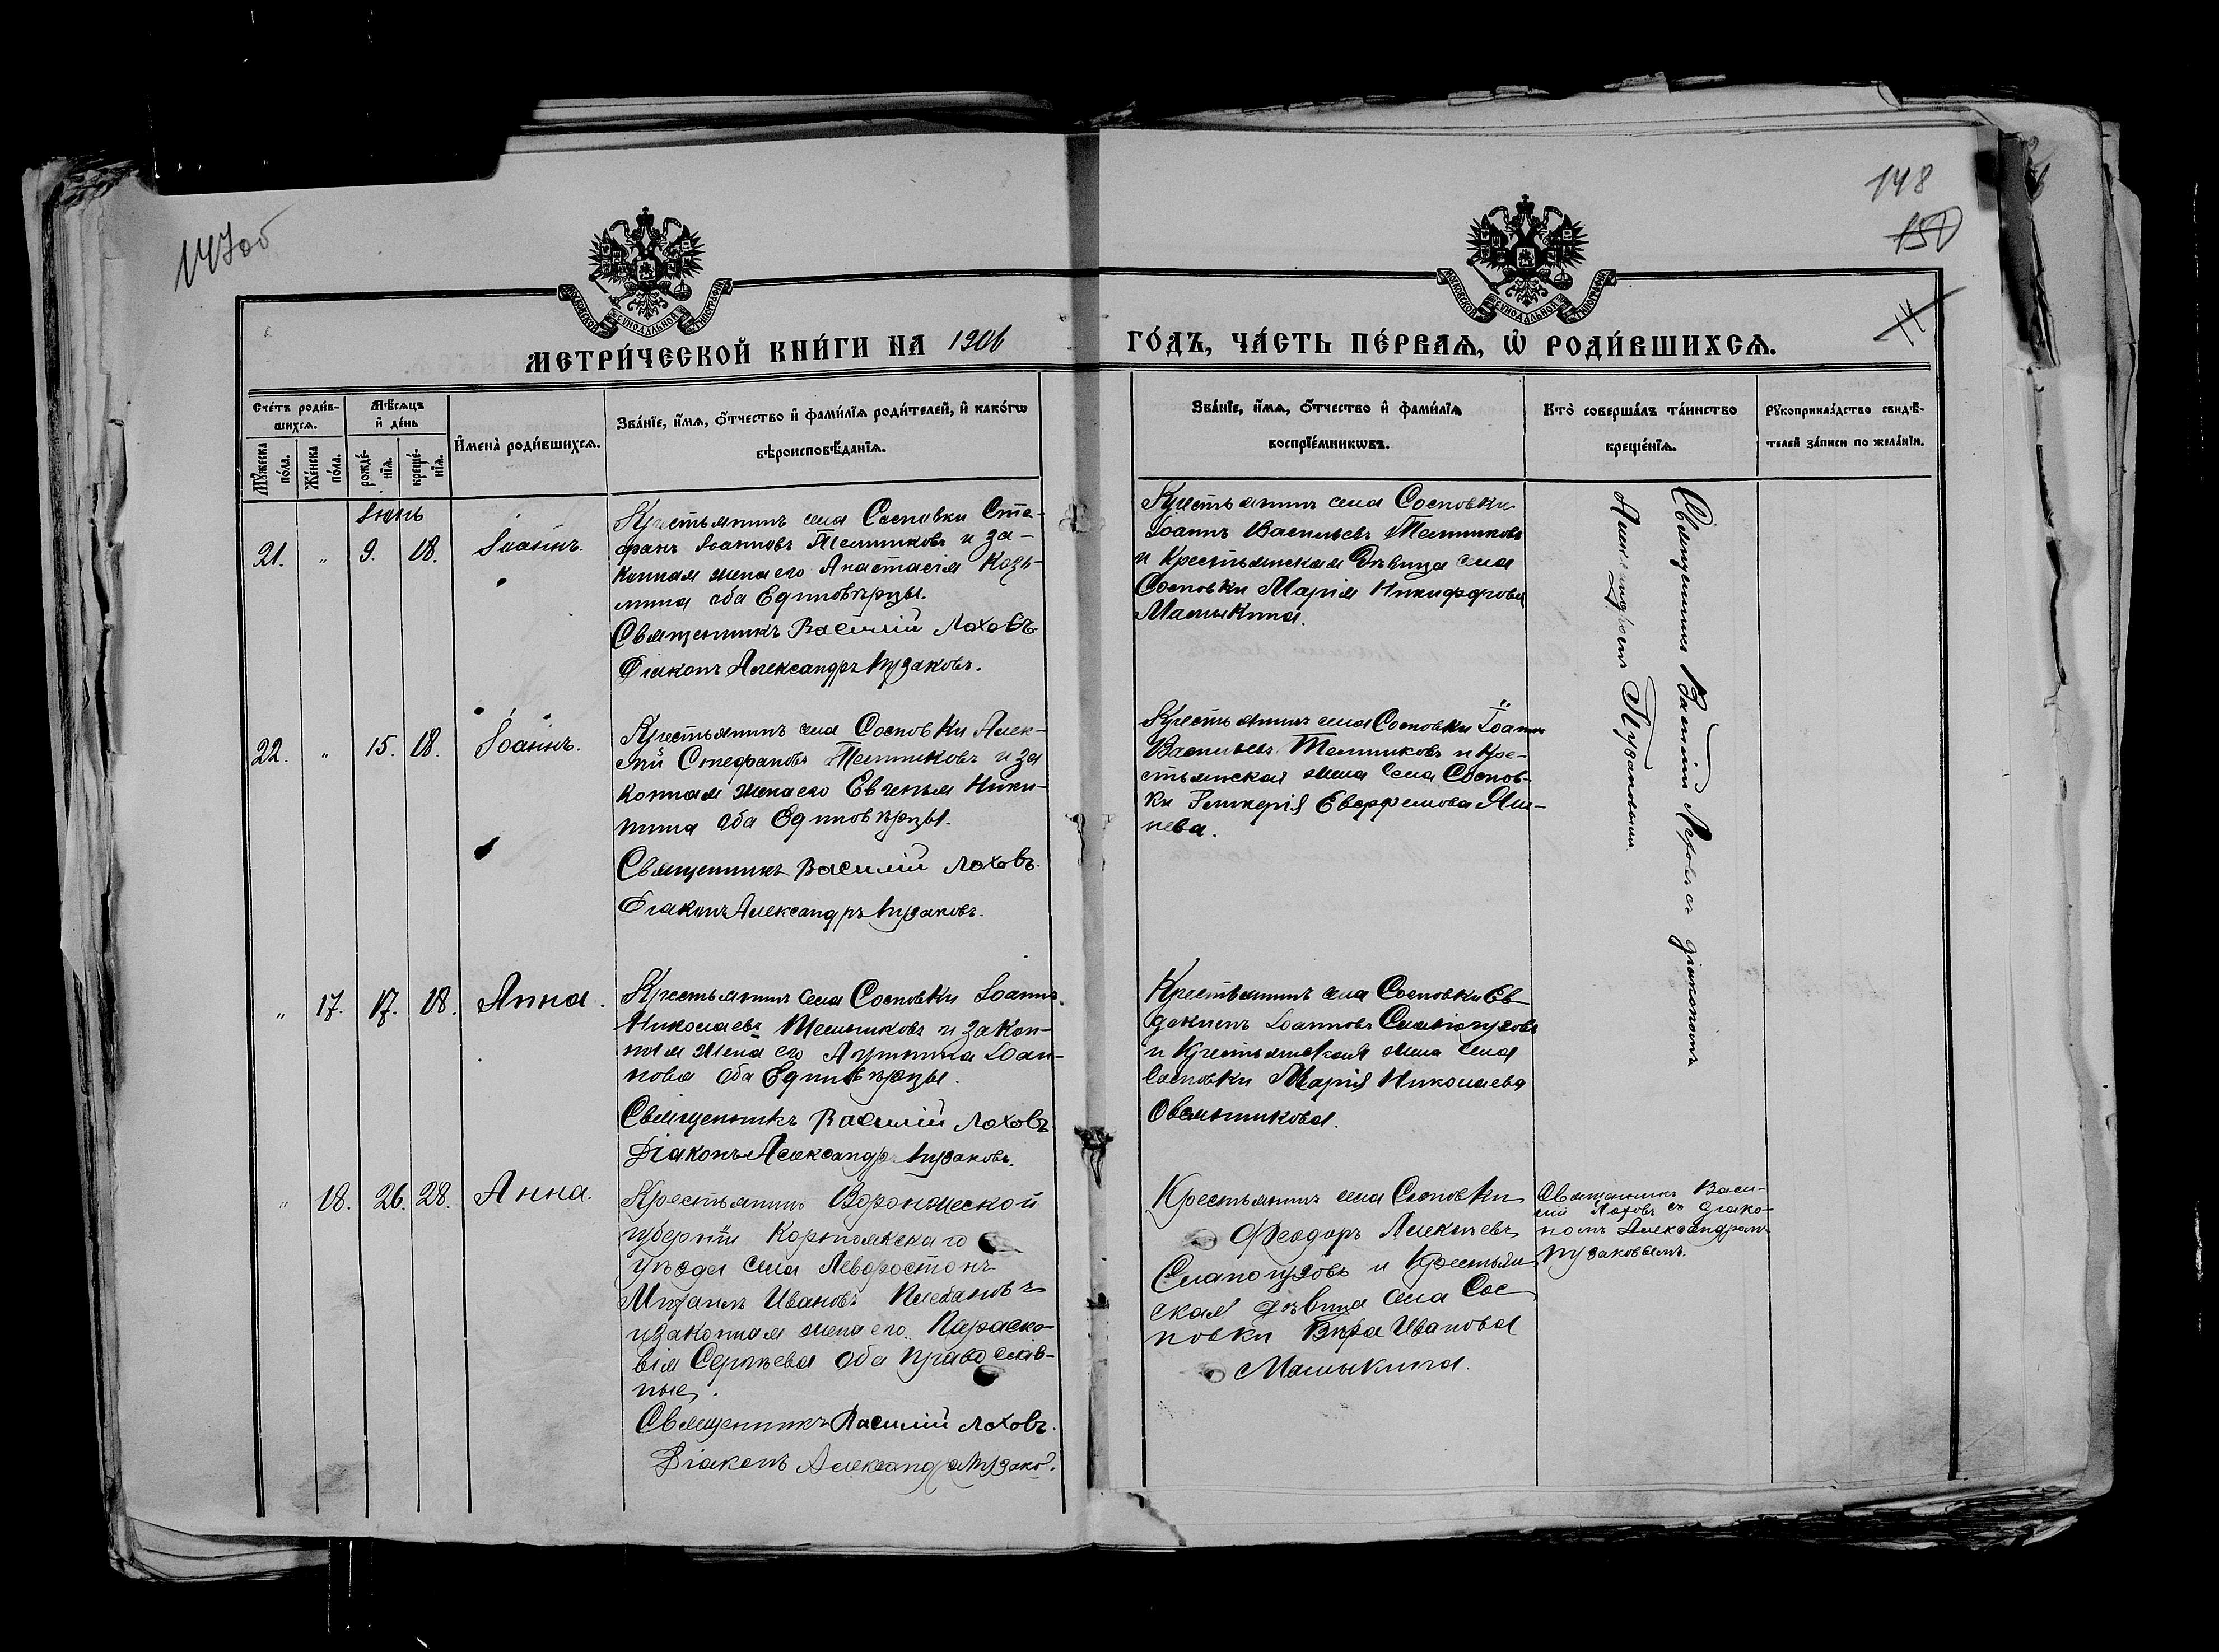 147об
148
150
14
МОСКОВСКОЙ СУНОДАЛЬНОЙ ТИПОГРАФІИ
МОСКОВСКОЙ СУНОДАЛЬНОЙ ТИПОГРАФІИ
МЕТРИ́ЧЕСКОЙ КНИ́ГИ НА 1906
ГО́ДЪ, ЧА́СТЬ ПЕ́РВАѦ, Ѡ҆ РОДИ́ВШИХСѦ.
Сче́тъ роди́в-
шихсѧ.
Мꙋ́жеска по́ла.
Же́нска по́ла.
Мѣ́сѧцъ
и҆ де́нь
рожде́-
нїѧ.
креще́-
нїѧ.
И҆мена̀ роди́вшихсѧ.
Зва́нїе, и҆́мѧ, ѻ҆́тчество и҆ фами́лїѧ роди́телей, и҆ како́гѡ
вѣроисповѣ́данїѧ.
Зва́нїе, и҆́мѧ, ѻ҆́тчество и҆ фами́лїѧ
воспрїе́мникѡвъ.
Кто̀ соверша́лъ та́инство
креще́нїѧ.
Рꙋкоприкла́дство свидѣ́-
телей за́писи по жела́нїю.
Іюнь
21. " 9. 18. Іоаннъ.
Крестьянинъ села Сосновки Сте-
фанъ Іоанновъ Мельниковъ и за-
конная жена его Анастасія Козь-
мина оба Единовѣрцы.
Священникъ Василій Лоховъ
Діаконъ Александръ Пузаковъ.
Крестьянинъ села Сосновки
Іоаннъ Васильевъ Мельниковъ
и Крестьянская дѣвица села
Сосновки Марія Никифорова
Мамыкина.
Священникъ Василій Лоховъ съ діакономъ
Александромъ Пузаковымъ.
22. " 15. 18. Іоаннъ.
Крестьянинъ села Сосновки Алек-
сѣй Стефановъ Мельниковъ и за
конная жена его Евгенья Ники-
тина оба Единовѣрцы.
Священникъ Василій Лоховъ.
Діаконъ Александръ Пузаковъ.
Крестьянинъ села Сосновки Іоаннъ
Васильевъ Мельниковъ и Кре-
стьянская жена села Соснов-
ки Гликерія Евфимова
" 17. 17. 18. Анна.
Крестьянинъ села Сосновки Іоаннъ
Николаевъ Мельниковъ и закон-
ная жена его Агриппина Іоан-
нова оба Единовѣрцы.
Священникъ Василій Лоховъ
Діаконъ Александръ Пузаковъ.
Крестьянинъ села Сосновки Ев-
докимъ Іоанновъ
и Крестьянская жена села
Сосновки Марія Николаева
Овсянникова.
" 18. 26. 28. Анна.
Крестьянинъ Воронежской
губерніи Коротоякскаго
уѣзда села
Михаилъ Ивановъ
и законная жена его Параско-
вія Сергѣева оба православ-
ные.
Священникъ Василій Лоховъ.
Діаконъ Александръ Пузако.
Крестьянинъ села Сосновки
Феодоръ Алексѣевъ
и Крестьян
ская дѣвица села Сос
новки Вѣра Иванова
Мамыкина.
Священникъ Васи-
лій Лоховъ съ діако-
номъ Александромъ
Пузаковымъ.